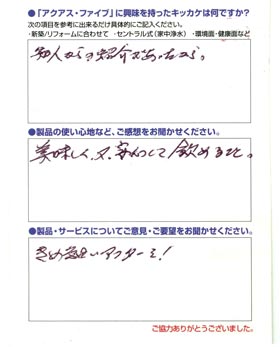 ●「アクアス・ファイブ」に興味を持ったキッカケは何ですか？
次の項目を参考に出来るだけ具体的にご記入ください。
・新築/リフォームに合わせて ・セントラル式（家中浄水） ・環境面・健康面など
知人からの紹介であったから。
●製品の使い心地など、ご感想をお聞かせください。
美味しく、又、安心して飲めること。
●製品・サービスについてご意見・ご要望をお聞かせください。
きめ細かいアフターを！
ご協力ありがとうございました。